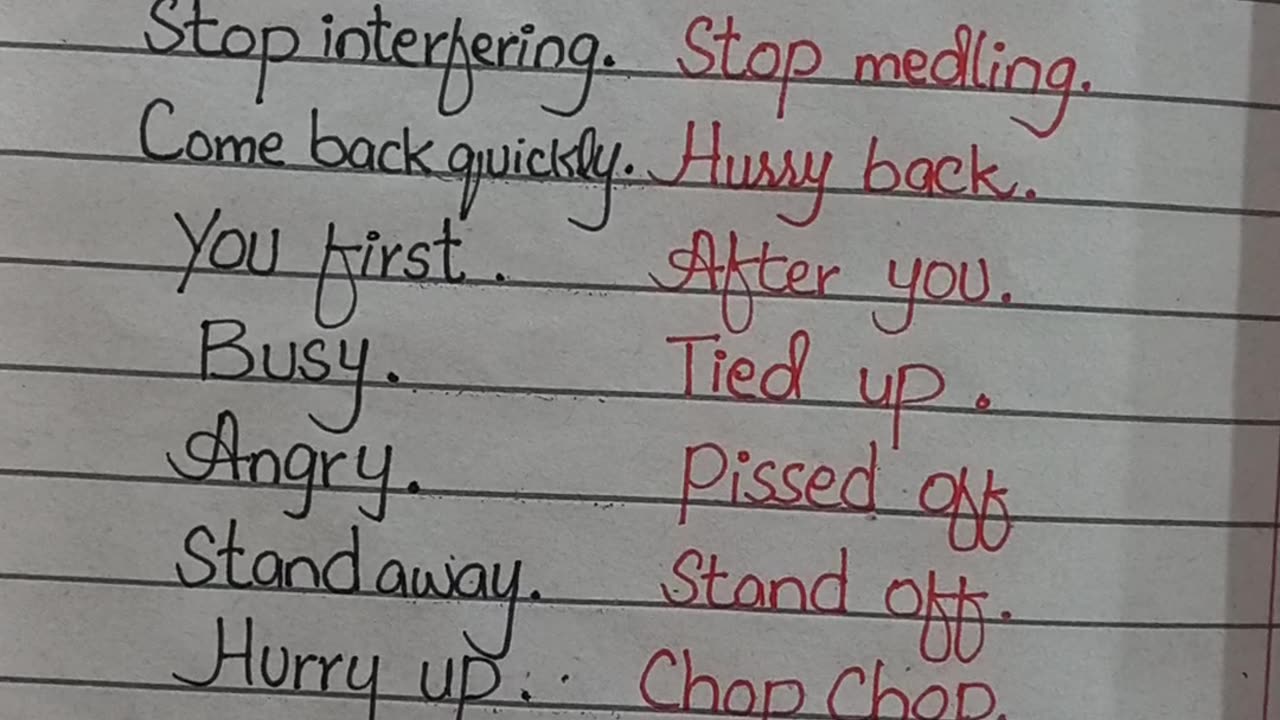 Stop interfering. Stop medling.
Come back quickly. Hurry back.
You first. After you.
Busy. Tied up.
Angry. Pissed off
Stand away. Stand off.
Hurry up. Chop Chop.